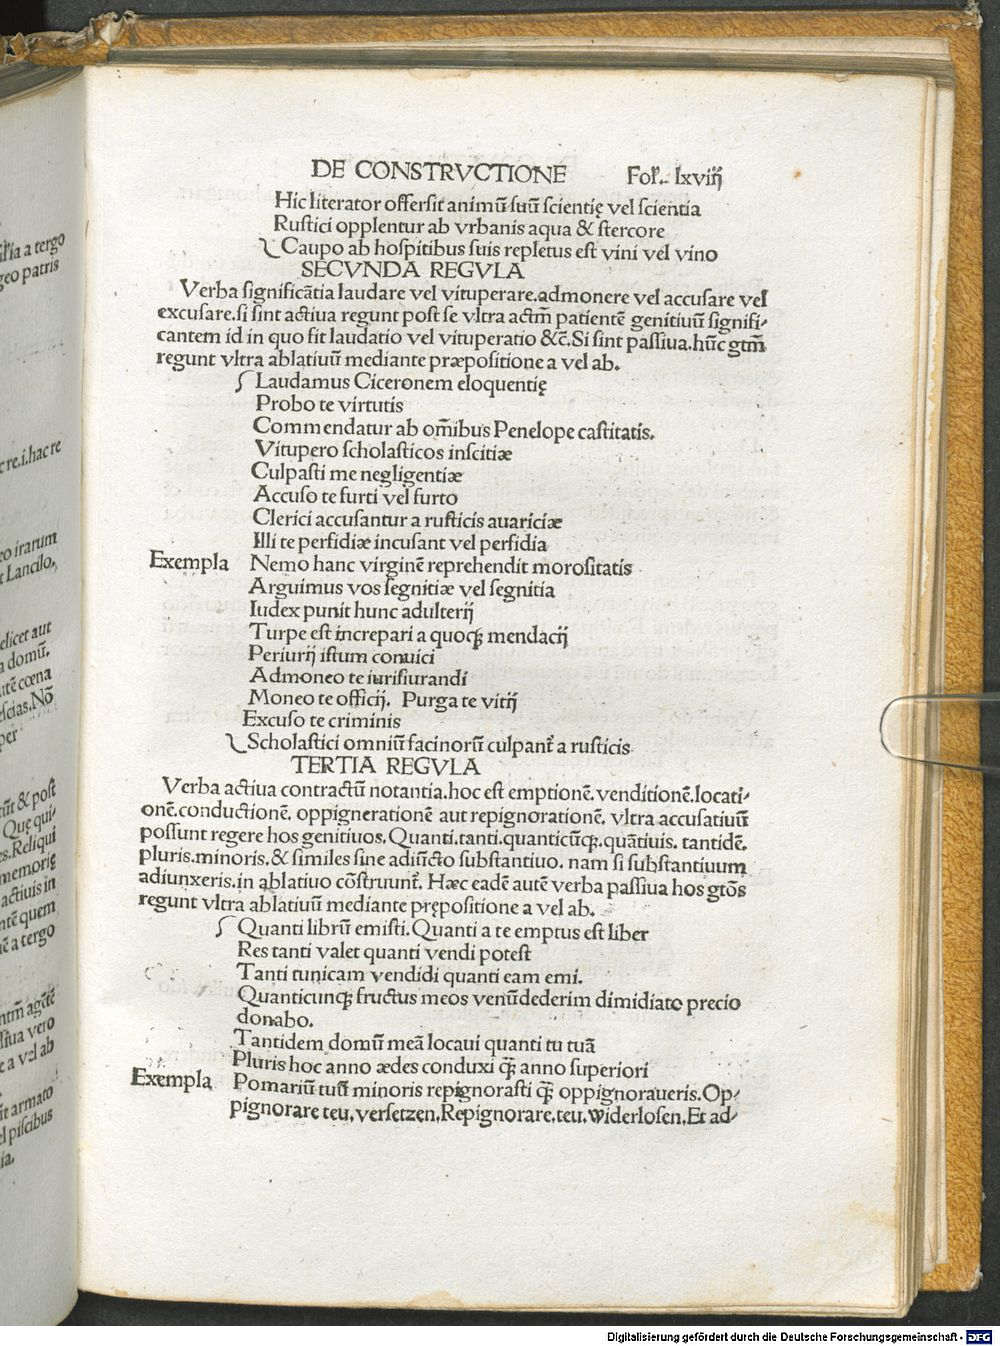 DE CONSTRVCTIONE Fol. lxviij
Hic literator offersit animū suū scientię vel scientia
Rustici opplentur ab vrbanis aqua & stercore
Caupo ab hospitibus suis repletus est vini vel vino
SECVNDA REGVLA
Verba significātia laudare vel vituperare.admonere vel accusare vel
excusare.si sint actiua regunt post se vltra actm̄ patientē genitiuū signifi-
cantem id in quo fit laudatio vel vituperatio &c̄.Si sint passiua.hūc gtm̄
regunt vltra ablatiuū mediante præpositione a vel ab.
Laudamus Ciceronem eloquentię
Probo te virtutis
Commendatur ab om̄ibus Penelope castitatis.
Vitupero scholasticos inscitiæ
Culpasti me negligentiæ
Accuso te furti vel furto
Clerici accusantur a rusticis auariciæ
Illi te perfidiæ incusant vel perfidia
Exempla Nemo hanc virginē reprehendit morositatis
Arguimus vos segnitiæ vel segnitia
Iudex punit hunc adulterij
Turpe est increpari a quoqꝫ mendacij
Periurij istum conuici
Admoneo te iurisiurandi
Moneo te officij. Purga te vitij
Excuso te criminis
Scholastici omniū facinorū culpant᷑ a rusticis
TERTIA REGVLA
Verba actiua contractū notantia.hoc est emptionē.venditionē.locati-
onē.conductionē.oppignerationē aut repignorationē.vltra accusatiuū
possunt regere hos genitiuos.Quanti.tanti.quanticūqꝫ.quātiuis.tantidē.
pluris.minoris.& similes sine adiūcto substantiuo.nam si substantiuum
adiunxeris.in ablatiuo cōstruunt᷑. Hæc eadē autē verba passiua hos gtōs
regunt vltra ablatiuū mediante prępositione a vel ab.
Quanti librū emisti.Quanti a te emptus est liber
Res tanti valet quanti vendi potest
Tanti tunicam vendidi quanti eam emi.
Quanticunqꝫ fructus meos venūdederim dimidiato precio
donabo.
Tantidem domū meā locaui quanti tu tuā
Pluris hoc anno ædes conduxi qꝫ̄ anno superiori
Exempla Pomariū tuū minoris repignorasti qꝫ̄ oppignoraueris.Op-
pignorare teu.versetzen.Repignorare.teu.widerlosen.Et ad-
a tergo
geo patris
re.i.hac re
irarum
Lancilo.
elicet aut
domū.
cœna
scias.Nō
per
& post
Quę qui-
Reliqui
memorię
actiuis in
quem
a tergo
agētē
vero
a vel ab
armato
piscibus
Digitalisierung gefördert durch die Deutsche Forschungsgemeinschaft - DFG